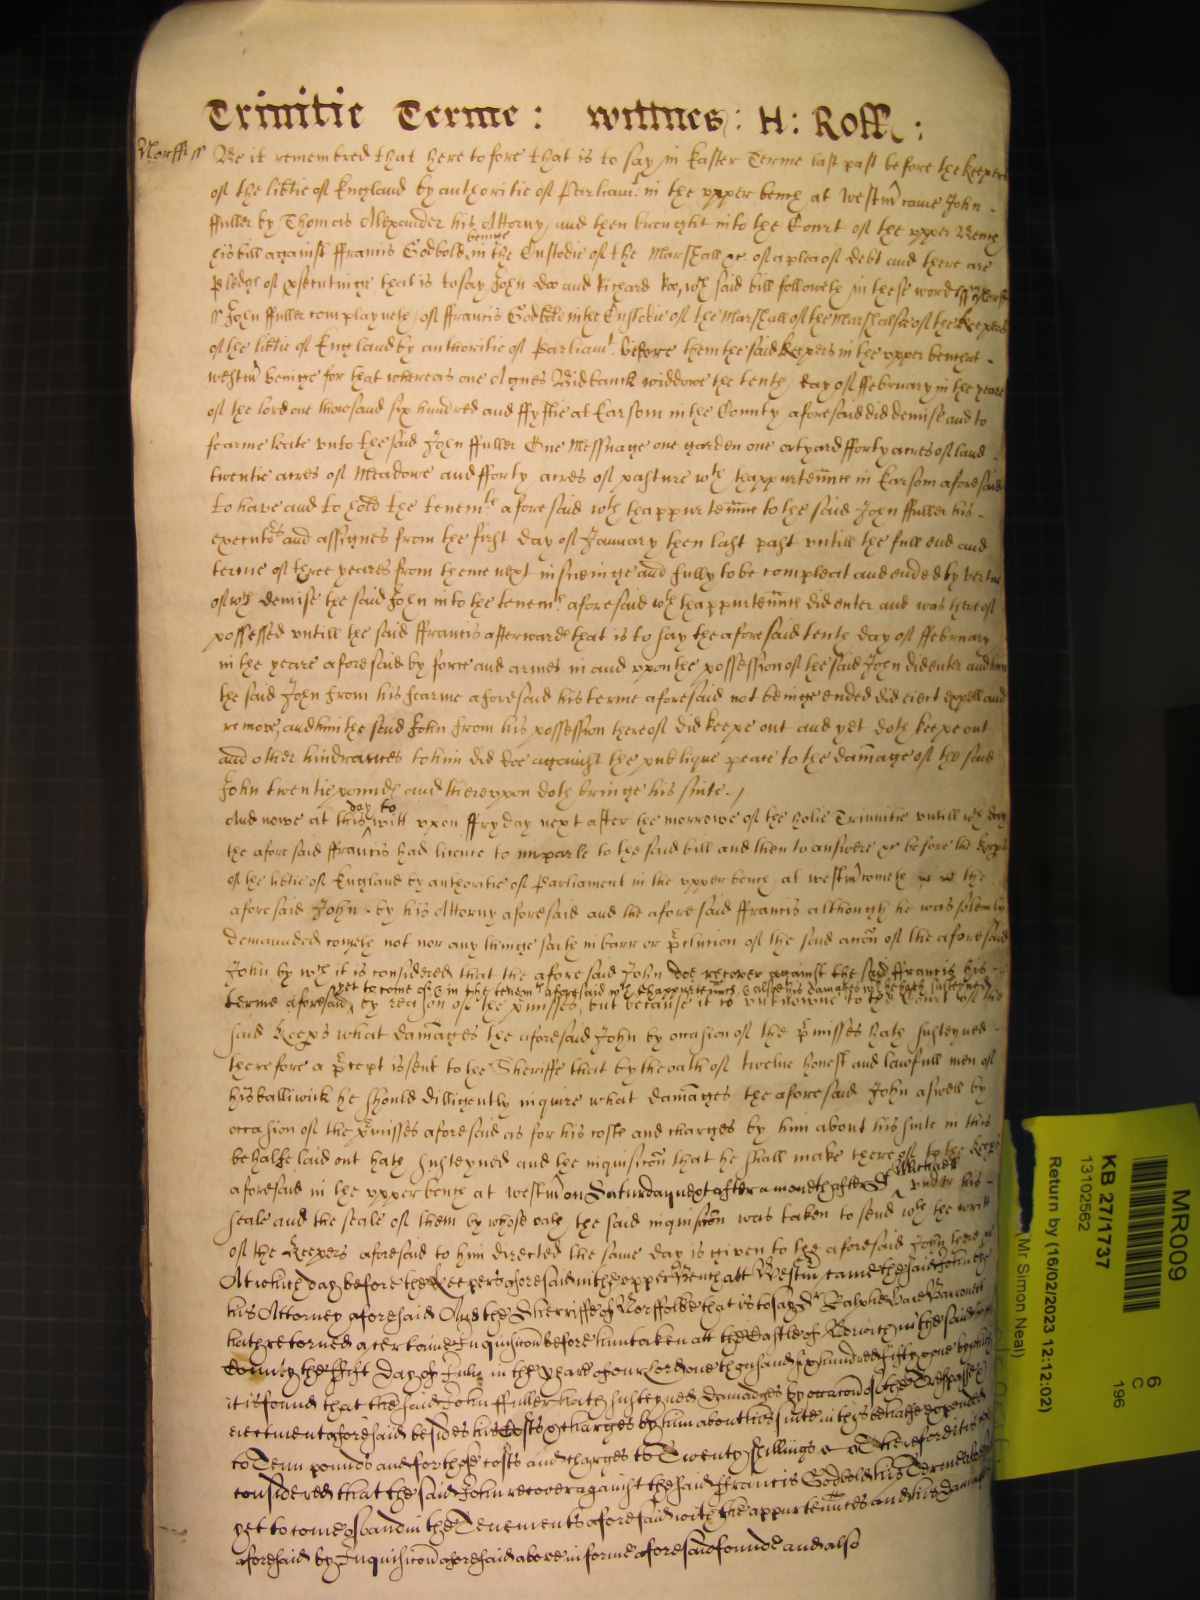 Trinitie Terme : wittnes : H : Rolle :
Norff ss Be it remembred that heretofore that is to say in Easter Terme last past before the keepers
of the libtie of England by authoritie of Parliamt in the upper bench at Westm came John
ffuller by Thomas Alexander his Attorny, and then brought into the Court of the upper Bench
his bill against ffrancis Godbold beinge in the Custodie of the Marshall &c of a plea of debt and there are
pledge of psecutinge that is to say John doe and Richard Roe, wch said bill followeth in these words ss Norff
ss John ffuller complayneth of ffrancis Godbold in the Custodie of the Marshall of the Marshalsie of the keepers
of the libtie of England by authoritie of Parliamt before them the said keepers in the upper bench at
westm beinge for that whereas one Agnes Bidbanck widdowe the tenth day of ffebruary in the yeare
of the lord one thowsand six hundred and ffyftie at Earsom in the County aforesaid did demise and to
fearme leate unto the said John ffuller One Messuage one garden one ortyard fforty acres of land
twentie acres of Meadowe and fforty acres of pasture wth thappurtennce in Earsom aforesaid
to have and to hold the tenemts aforesaid wth thappurtennce to the said John ffuller his
executors and assignes from the first day of January then last past untill the full end and
terme of three yeares from thence next insueinge and fully to be compleat and ended by vertue
of wch demise the said John into the tenemts aforesaid wth thappurtennce did enter and was thereof
possessed untill the said ffrancis afterwards that is to say the aforesaid tenth day of ffebruary
in the yeare aforesaid by force and armes in and upon the possession of the said John did enter and him
the said John from his fearme aforesaid his terme aforesaid not beinge ended did eiect expell and
remove, and him the said John from his possession thereof did keepe out and yet doth keepe out
and other hindrances to him did doe against the publique peace to the damage of the said
John twentie pounds and thereupon doth bringe his suite.
And nowe at this day to witt upon ffryday next after the morrowe of the holie Trinnitie untill wch day
the aforesaid ffrancis had licence to imparle to the said bill and then to answere &c before the keeps
of the libtie of England by authoritie of Parliament in the upper bench at westm cometh the
aforesaid John by his Attorny aforesaid and the aforesaid ffrancis although he was solemly
demaunded cometh not nor any thinge saith in barr or pclucion of the said accon of the aforesaid
John by wch it is considered that the aforesaid John doe recover against the said ffrancis his
yet to come of & in the tenemts aforesaid wth thappurtennces & alsoe his damages wch he hath susteyned
terme aforesaid by reason of the pmisses, but because it is unknowne to the Court of the
said keeps what damages the aforesaid John by occasion of the pmisses hath susteyned
therefore a pcept is sent to the Sheriffe that by the oath of twelve honest and lawfull men of
his balliwick he should dilligently inquire what damages the aforesaid John aswell by
occasion of the pmisses aforesaid as for his costs and charges by him about his suite in this
behalfe laid out hath susteyned and the inquisicon that he shall make thereof to the keeps
aforesaid in the upper bench at westm on Saturday next after a moneth after St Michaell under his
seale and the seale of them by whose oath the said inquisicon was taken to send wth the writt
of the keepers aforesaid to him directed the same day is given to the aforesaid John there &c
At which day before the keepers aforesaid in the upper Bench att Westm came the said John by
his Attorney aforesaid And the Sherriffe of Norffolke that is to say Sr Ralphe Hare Barronett
hath retorned a certaine Inquisicon before him taken att the Castle of Norwich in the said
County the ffift day of July in the yeare of our Lord one thousand six hundred fifty one by which
it is found that the said John ffuller hath susteyned damages by occacon of the Trespasse &
eiectment aforesaid besides his Costs & charges by him about his suite in this behalfe expended
to Tenn pounds and for those costs and charges to Twenty shillings Therefore it is
considered that the said John recover against the said ffrancis Godbold his Terme
yet to come of and in the Tenements aforesaid with the appurtennces and his damages
aforesaid by Inquisicon aforesaid above in forme aforesaid founde and also
MR009
6
C
196
KB 27/1737
13102562
Return by (16/02/2023 12:12:02)
(Mr Simon Neal)